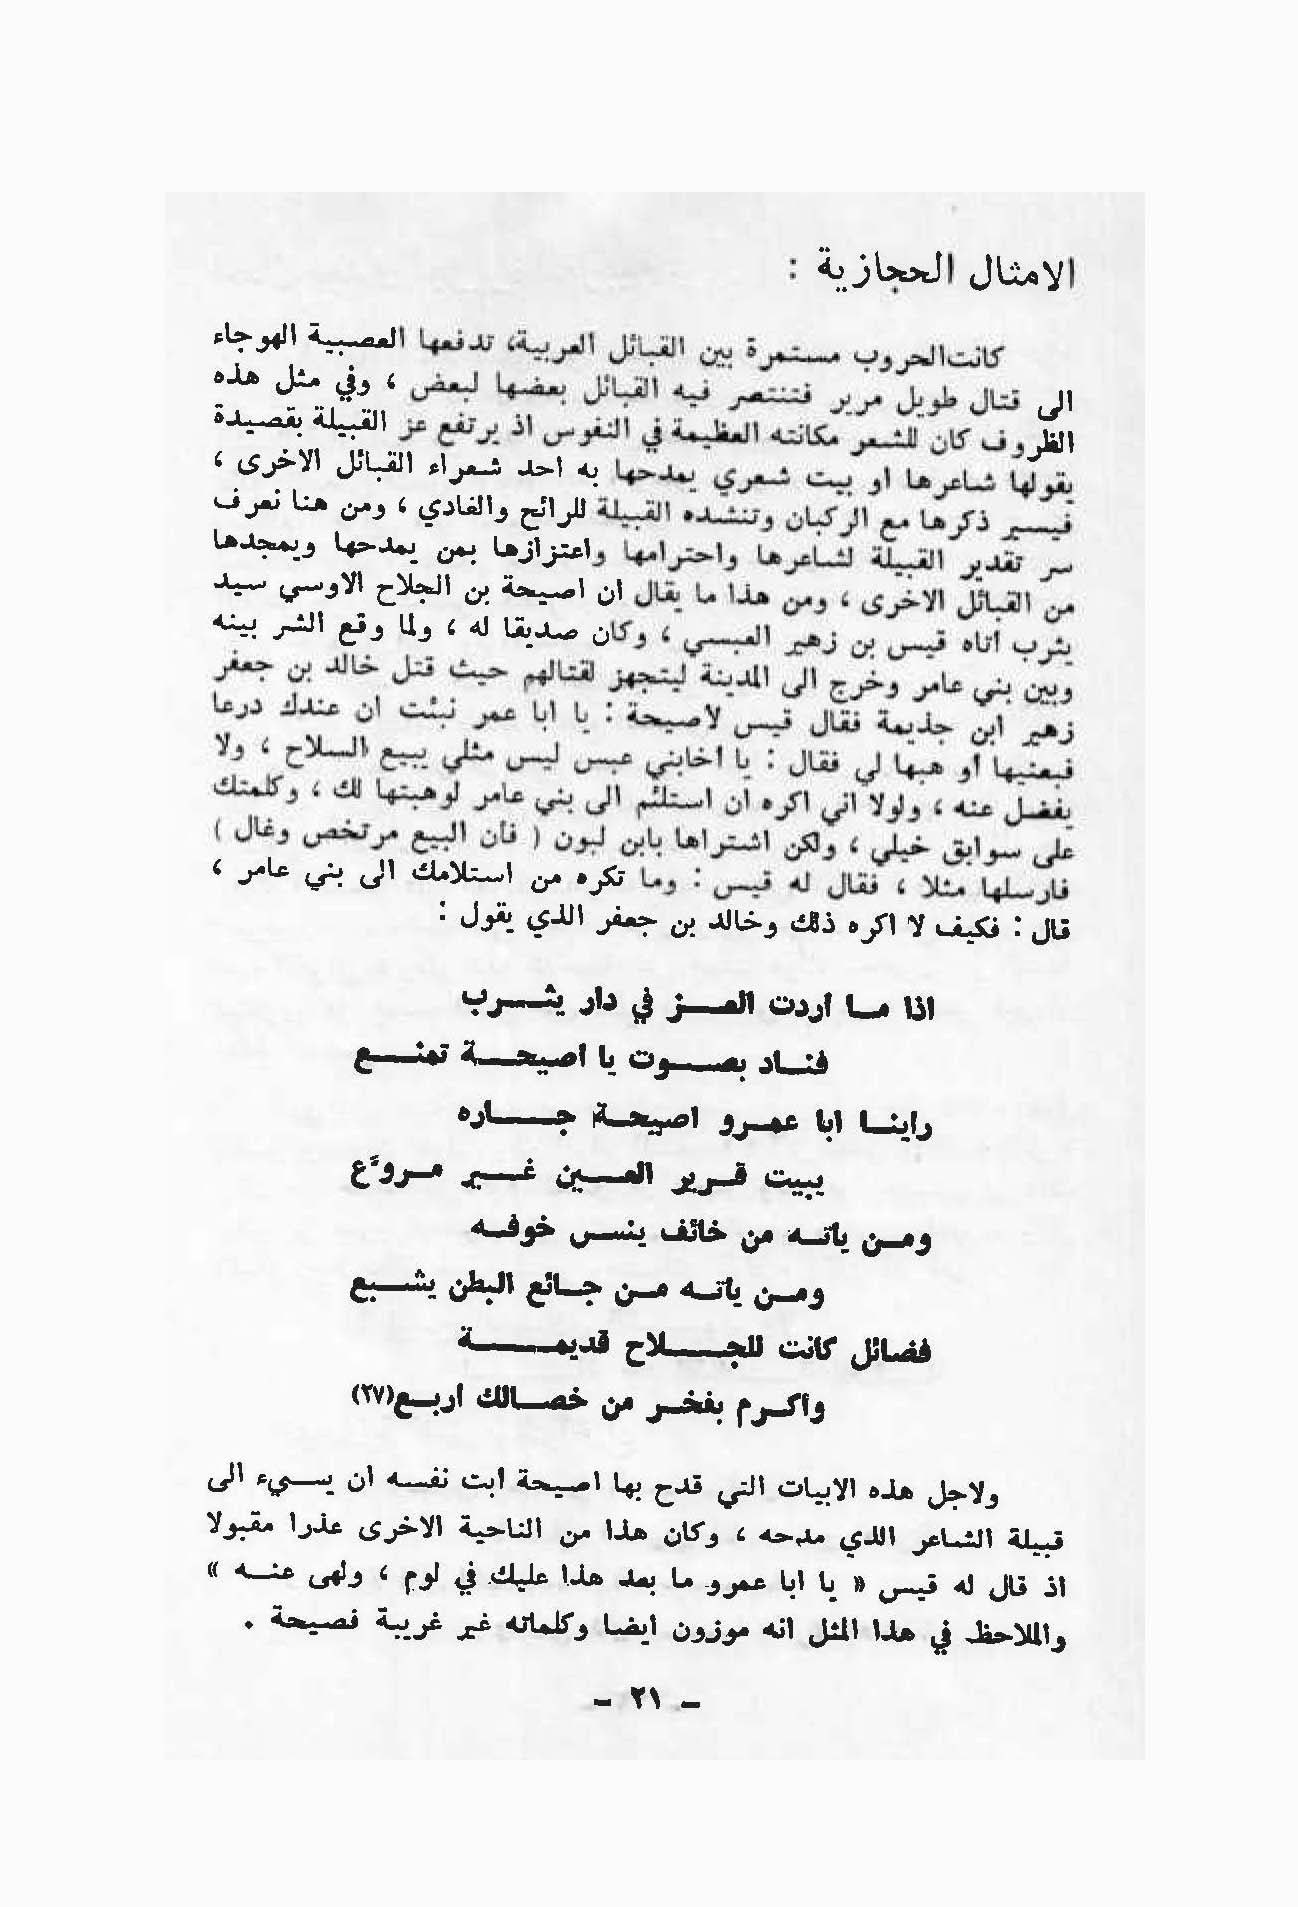 الامثال الحجازية :
كانت الحروب مستمرة بين القبائل العربية، تدفعها العصبية الهوجاء
الى قتال طويل مرير فتنتصر فيه القبائل بعضها لبعض ، وفي مثل هذه
الظروف كان للشعر مكانته العظيمة في النفوس اذ يرتفع عز القبيلة بقصيدة
يقولها شاعرها او بيت شعري يمدحها به احد شعراء القبائل الاخرى ،
فيسير ذكرها مع الركبان وتنشده القبيلة للرائح والغادي ، ومن هنا نعرف
سر تقدير القبيلة لشاعرها واحترامها واعتزازها بمن يمدحها ويمجدها
من القبائل الاخرى ، ومن هذا ما يقال ان اصيحة بن الجلاح الاوسي سيد
يثرب اتاه قيس بن زهير العبسي ، وكان صديقا له ، ولما وقع الشر بينه
وبين بني عامر وخرج الى المدينة ليتجهز لقتالهم حيث قتل خالد بن جعفر
زهير ابن جذيمة فقال قيس لاصيحة : يا ابا عمر نبئت ان عندك درعا
فبعنيها او هبها لي فقال : يا اخابني عبس ليس مثلي يبيع السلاح ، ولا
يفضل عنه ، ولولا اني اكره ان استلئم الى بني عامر لوهبتها لك ، وكلمتك
على سوابق خيلي ، ولكن اشتراها بابن لبون ( فأن البيع مرتخص وغال )
فارسلها مثلا ، فقال له قيس : وما تكره من استلامك الى بني عامر ،
قال : فكيف لا اكره ذلك وخالد بن جعفر الذي يقول :
اذا مـا اردت العـز في دار يثـرب
فنـاد بصـوت يا اصيحـة تمنـع
راينـا ابا عمـرو اصيحـة جـاره
يبيت قـرير العـين غـير مـروّع
ومـن ياتـه من خائف ينسـى خوفـه
ومـن ياتـه مـن جـائع البطن يشـبع
فضائل كانت للجـلاح قديمـة
واكـرم بفخـر من خصـالك اربـع(٢٧)
ولاجل هذه الابيات التي قدح بها اصيحة ابت نفسه ان يسـيء الى
قبيلة الشاعر الذي مدحه ، وكان هذا من الناحية الاخرى عذرا مقبولا
اذ قال له قيس « يا ابا عمرو ما بعد هذا عليك في لوم ، ولهى عنـه »
والملاحظ في هذا المثل انه موزون ايضا وكلماته غير غريبة فصيحة .
– ٢١ –